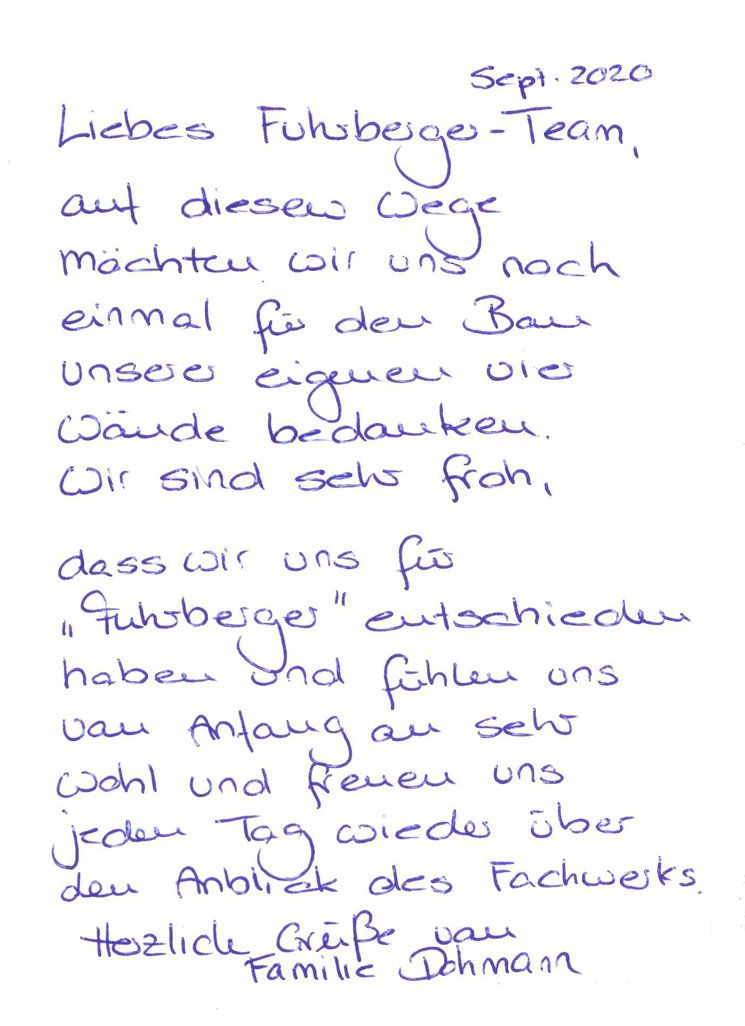 Sept. 2020
Liebes Fuhrberger-Team,
auf diesem Wege
möchten wir uns noch
einmal für den Bau
unserer eigenen vier
Wände bedanken.
Wir sind sehr froh,
dass wir uns für
„Fuhrberger" entschieden
haben und fühlen uns
von Anfang an sehr
wohl und freuen uns
jeden Tag wieder über
den Anblick des Fachwerks.
Herzliche Grüße von
Familie Dohmann